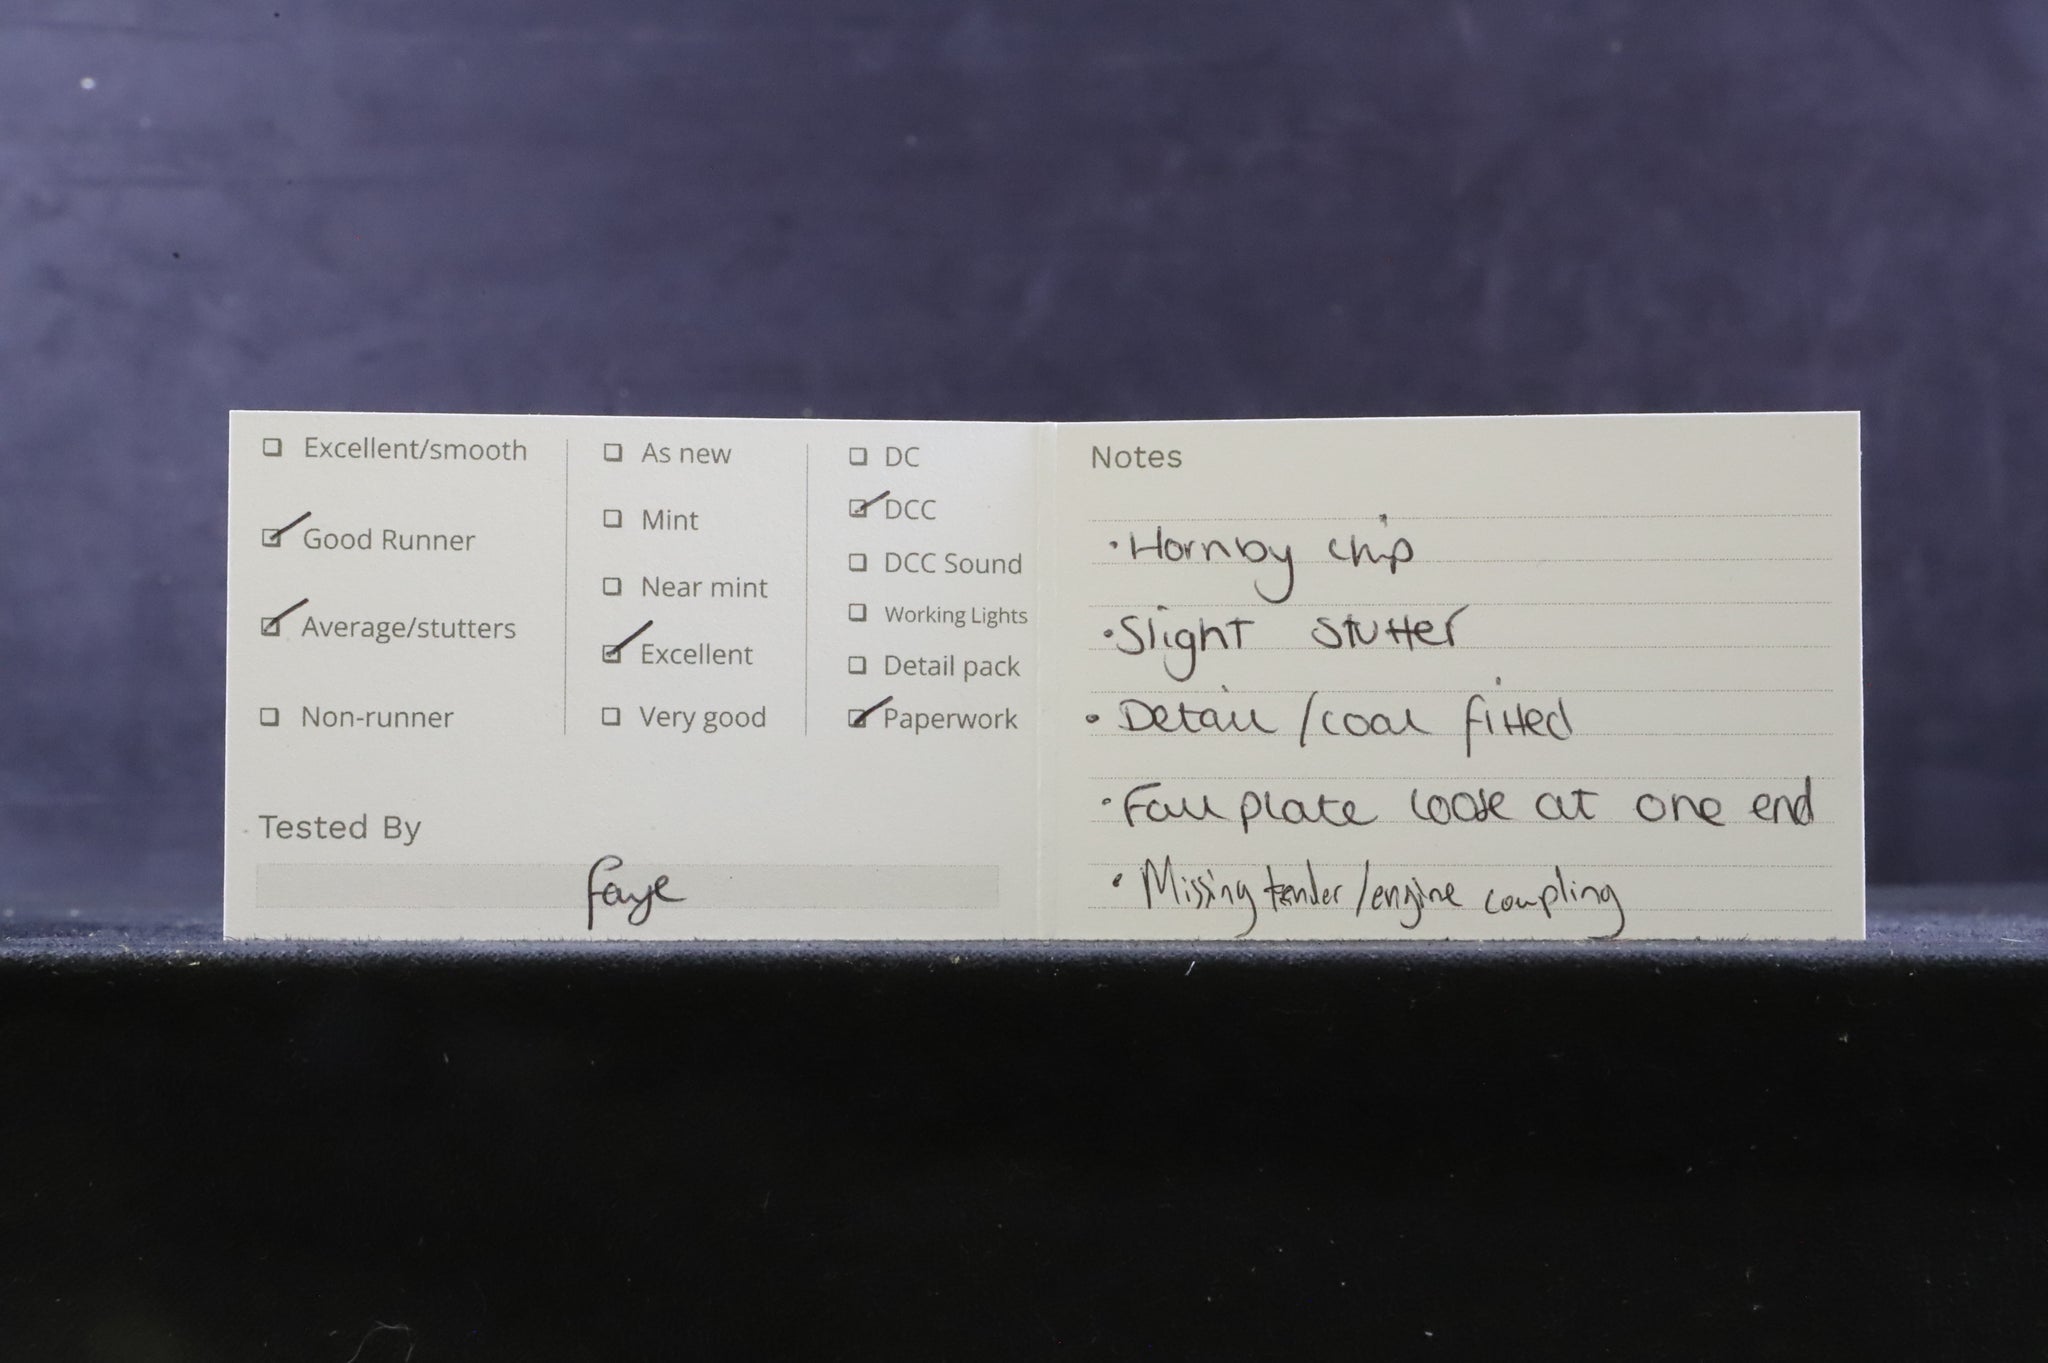 ☐ Excellent/smooth
☑ Good Runner
☑ Average/stutters
☐ Non-runner
☐ As new
☐ Mint
☐ Near mint
☑ Excellent
☐ Very good
☐ DC
☑ DCC
☐ DCC Sound
☐ Working Lights
☐ Detail pack
☑ Paperwork
Tested By
faye
Notes
• Hornby chip
• Slight stutter
• Detail / coal fitted
• Fall plate loose at one end
• Missing tender/engine coupling